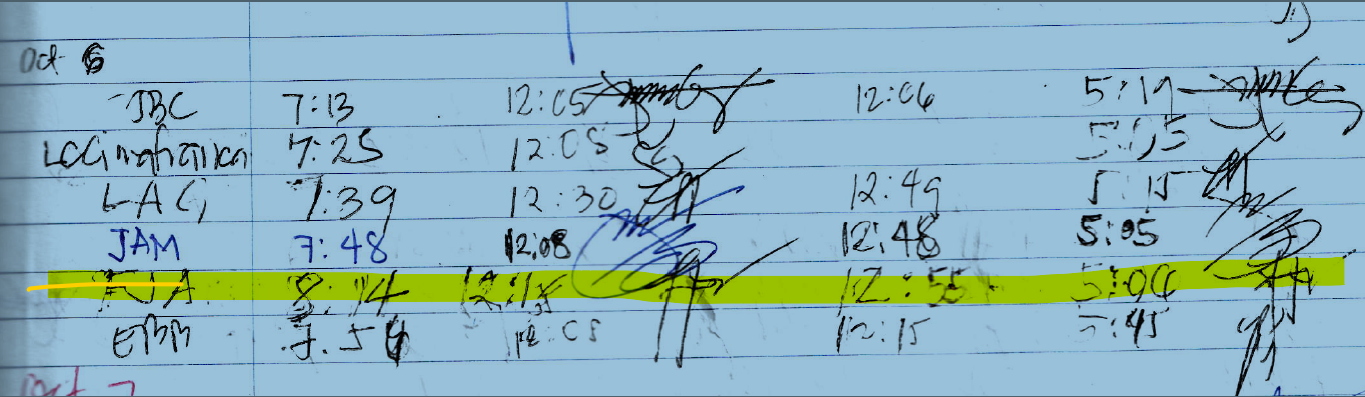 Oct 6
JBC 7:13 12:05 12:06 5:19
7:25 12:05 5:05
LAG 7:39 12:30 12:49 5:15
JAM 7:48 12:08 12:48 5:05
FJA 8:14 12:15 12:55 5:06
EBB 7:54 12:05 12:15 5:45
Oct 7